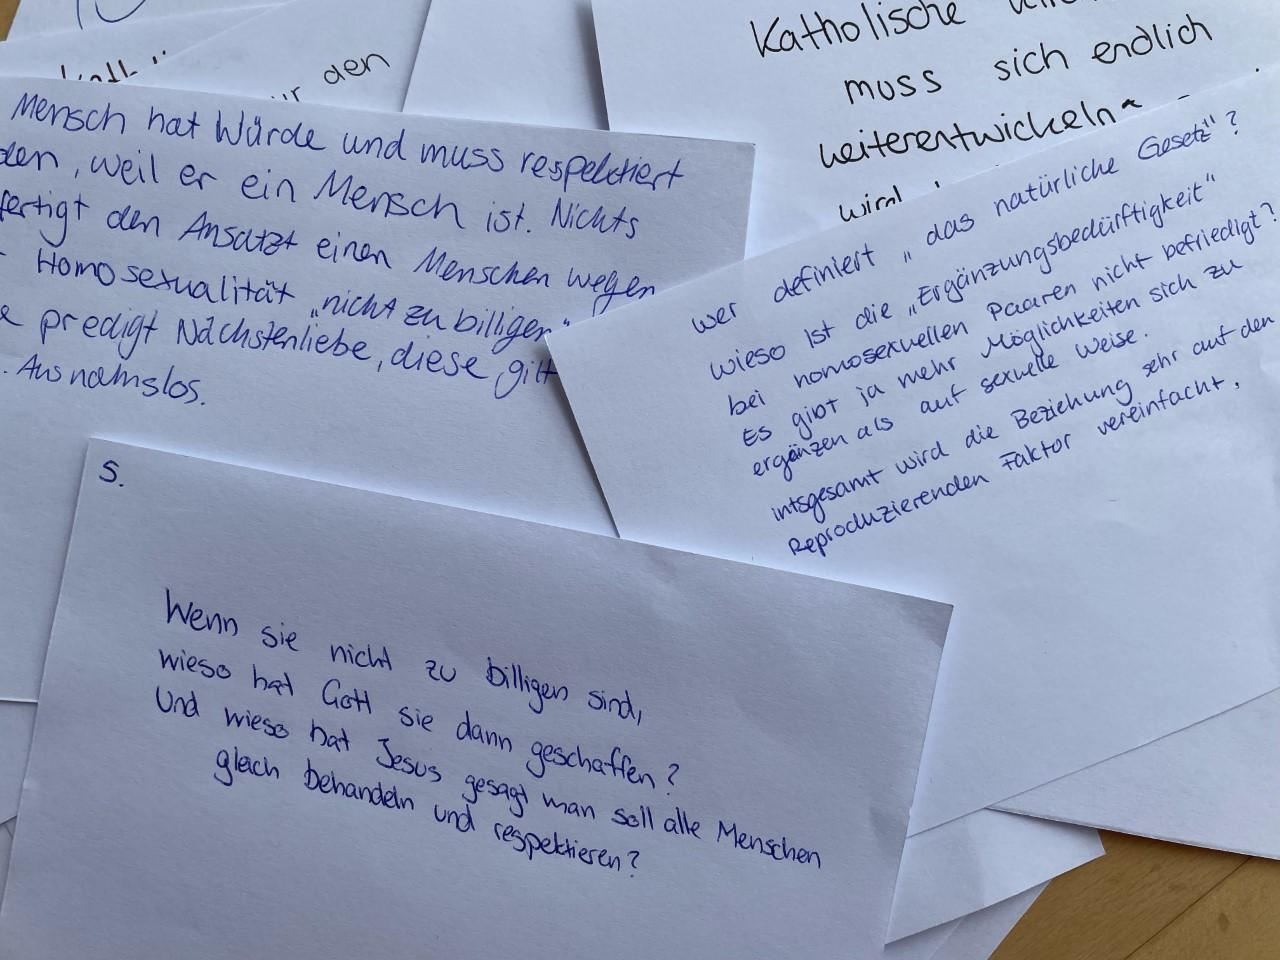 den
Katholische
muss sich endlich
weiterentwickeln
wird
Mensch hat Würde und muss respektiert
den, weil er ein Mensch ist. Nichts
fertigt den Ansatzt einen Menschen wegen
Homosexualität „nicht zu billigen“
predigt Nächstenliebe, diese gilt
. Ausnahmslos.
wer definiert „das natürliche Gesetz“?
wieso ist die „Ergänzungsbedürftigkeit“
bei homosexuellen Paaren nicht befriedigt?
Es gibt ja mehr Möglichkeiten sich zu
ergänzen als auf sexuelle Weise.
intsgesamt wird die Beziehung sehr auf den
Reproduzierenden Faktor vereinfacht.
S.
Wenn sie nicht zu billigen sind,
wieso hat Gott sie dann geschaffen?
Und wieso hat Jesus gesagt man soll alle Menschen
gleich behandeln und respektieren?